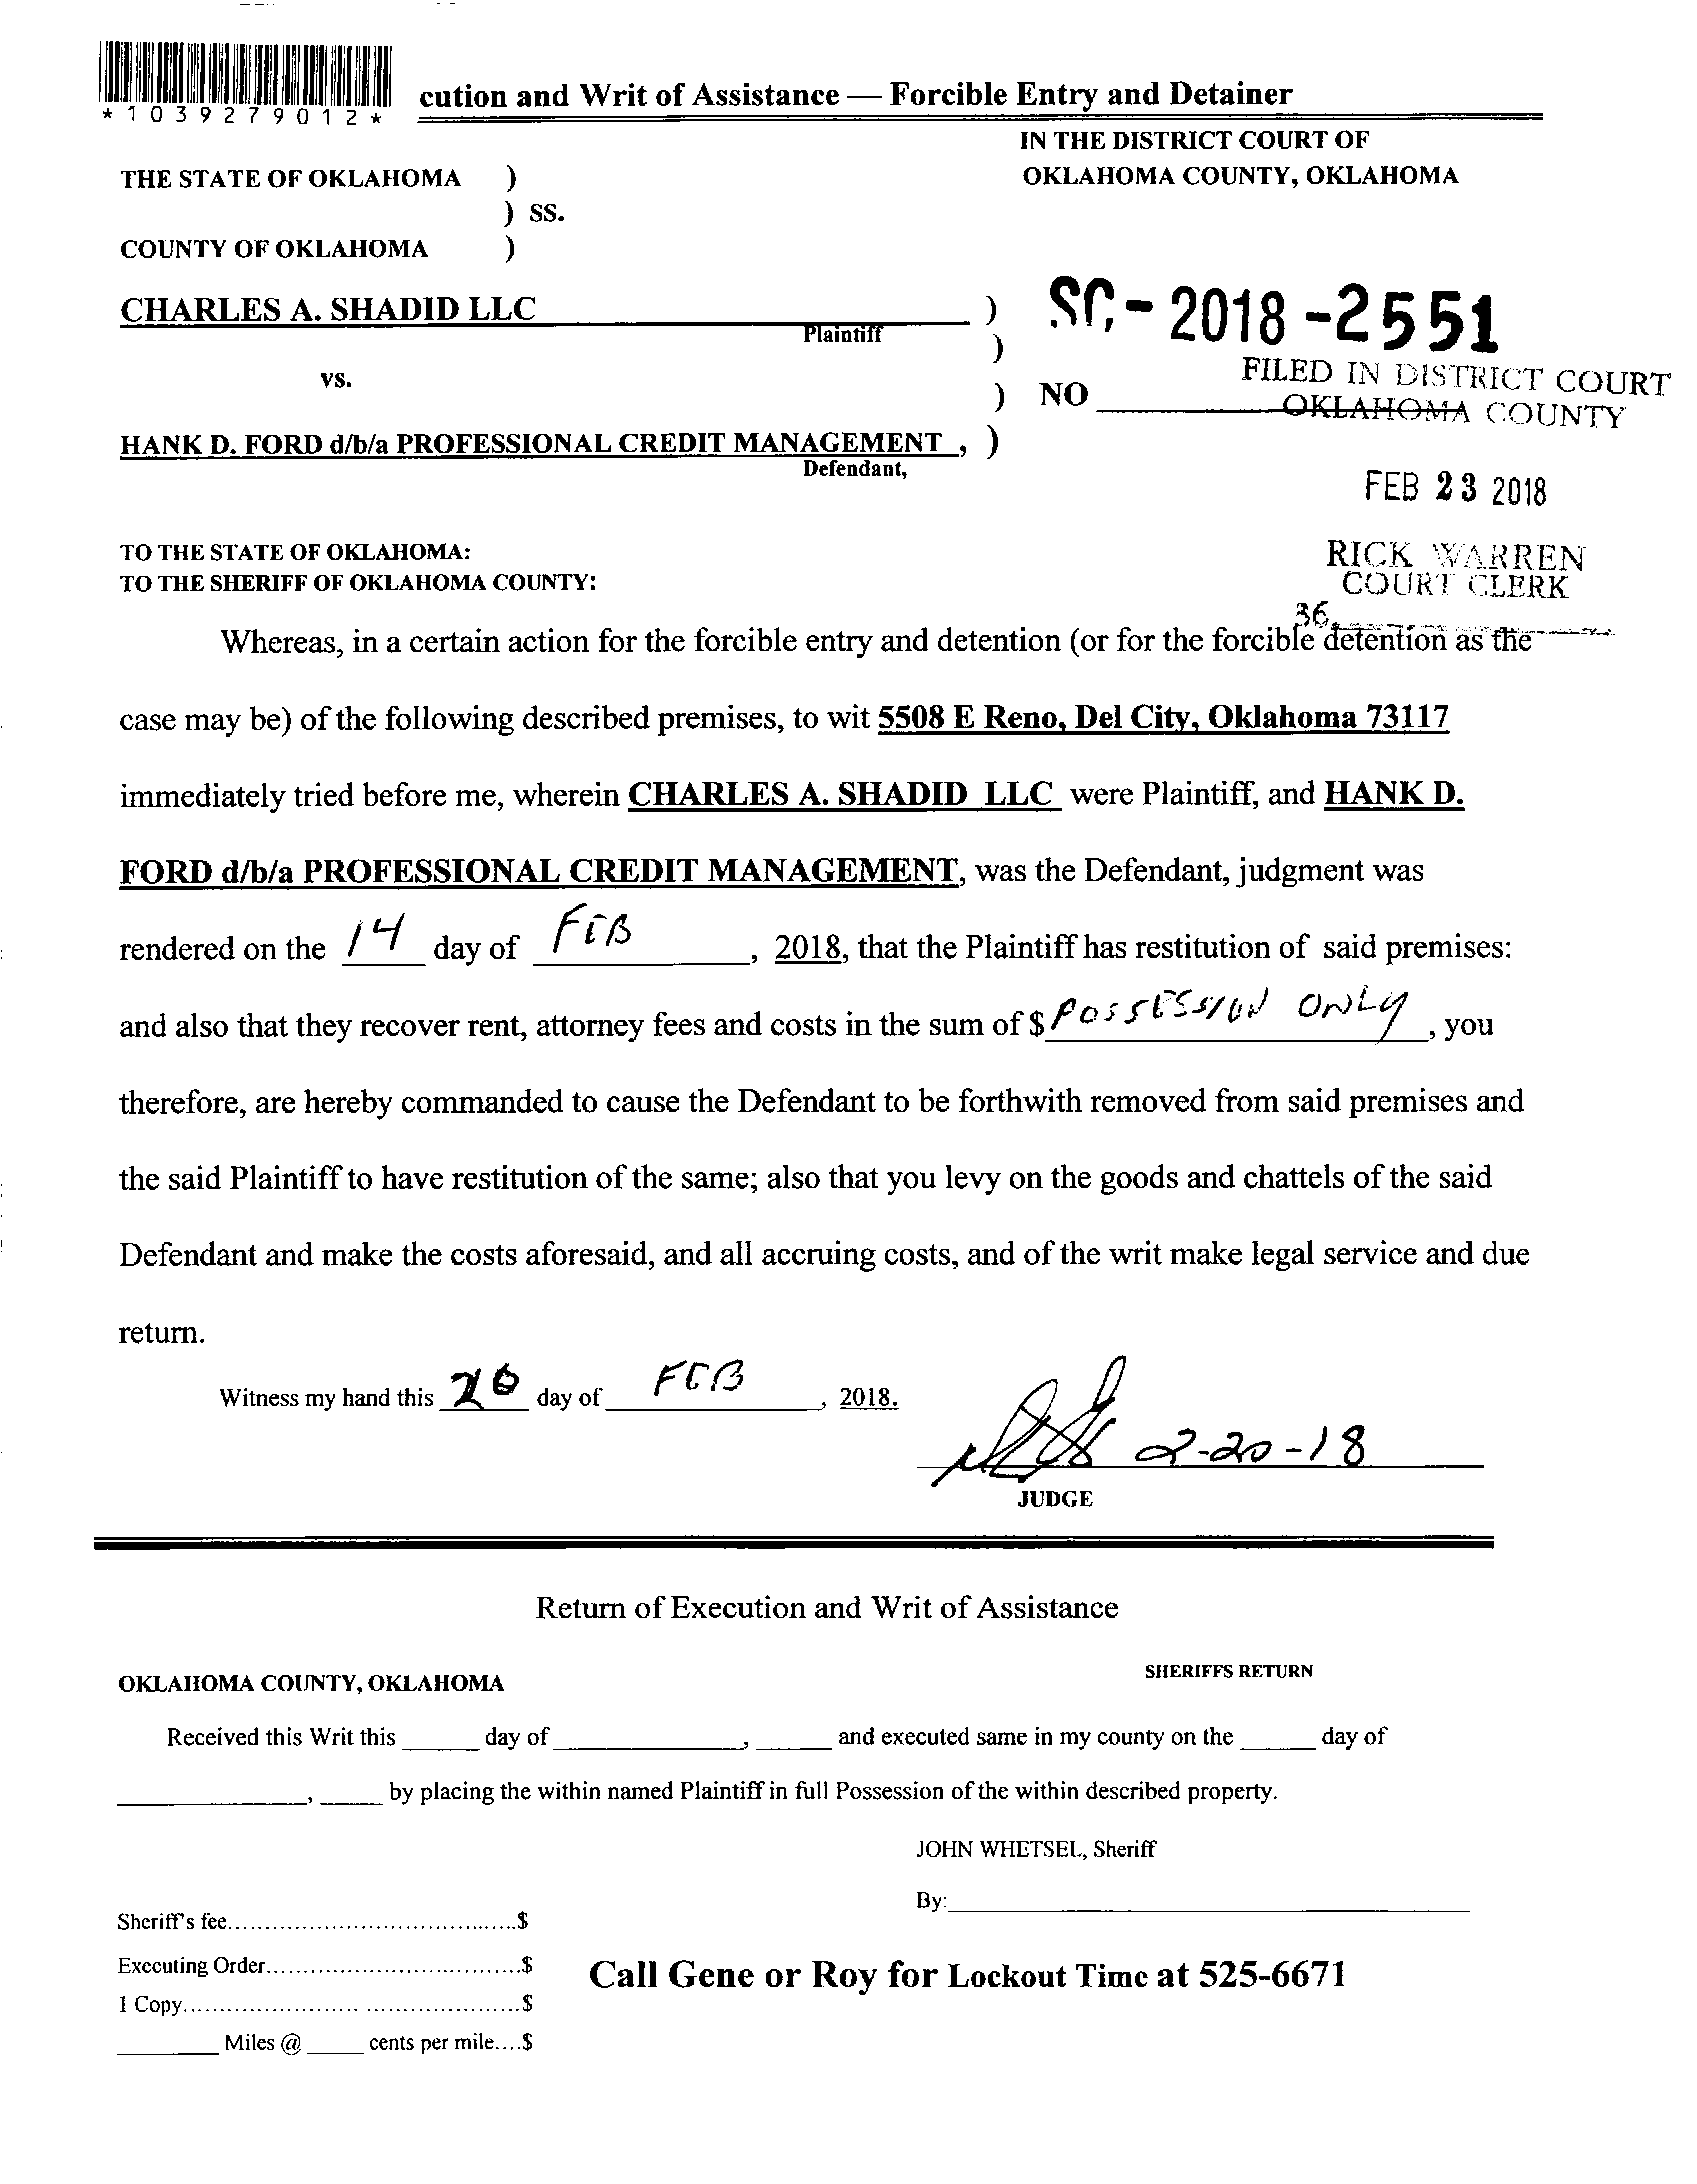 *1039279012*
cution and Writ of Assistance — Forcible Entry and Detainer
IN THE DISTRICT COURT OF
THE STATE OF OKLAHOMA ) OKLAHOMA COUNTY, OKLAHOMA
) SS.
COUNTY OF OKLAHOMA )
CHARLES A. SHADID LLC ) SC-2018-2551
Plaintiff )
FILED IN DISTRICT COURT
vs.
) NO OKLAHOMA COUNTY
HANK D. FORD d/b/a PROFESSIONAL CREDIT MANAGEMENT , )
Defendant,
FEB 23 2018
TO THE STATE OF OKLAHOMA:
RICK WARREN
TO THE SHERIFF OF OKLAHOMA COUNTY:
COURT CLERK
36
Whereas, in a certain action for the forcible entry and detention (or for the forcible detention as the
case may be) of the following described premises, to wit 5508 E Reno, Del City, Oklahoma 73117
immediately tried before me, wherein CHARLES A. SHADID LLC were Plaintiff, and HANK D.
FORD d/b/a PROFESSIONAL CREDIT MANAGEMENT, was the Defendant, judgment was
rendered on the 14 day of FEB, 2018, that the Plaintiff has restitution of said premises:
and also that they recover rent, attorney fees and costs in the sum of $ POSSESSION ONLY, you
therefore, are hereby commanded to cause the Defendant to be forthwith removed from said premises and
the said Plaintiff to have restitution of the same; also that you levy on the goods and chattels of the said
Defendant and make the costs aforesaid, and all accruing costs, and of the writ make legal service and due
return.
Witness my hand this 20 day of FEB, 2018.
2-20-18
JUDGE
Return of Execution and Writ of Assistance
SHERIFFS RETURN
OKLAHOMA COUNTY, OKLAHOMA
Received this Writ this ______ day of ______________, ______ and executed same in my county on the ______ day of
______________, _____ by placing the within named Plaintiff in full Possession of the within described property.
JOHN WHETSEL, Sheriff
By:
Sheriff's fee........................................$
Executing Order...................................$
Call Gene or Roy for Lockout Time at 525-6671
1 Copy..............................................$
________ Miles @ _____ cents per mile....$